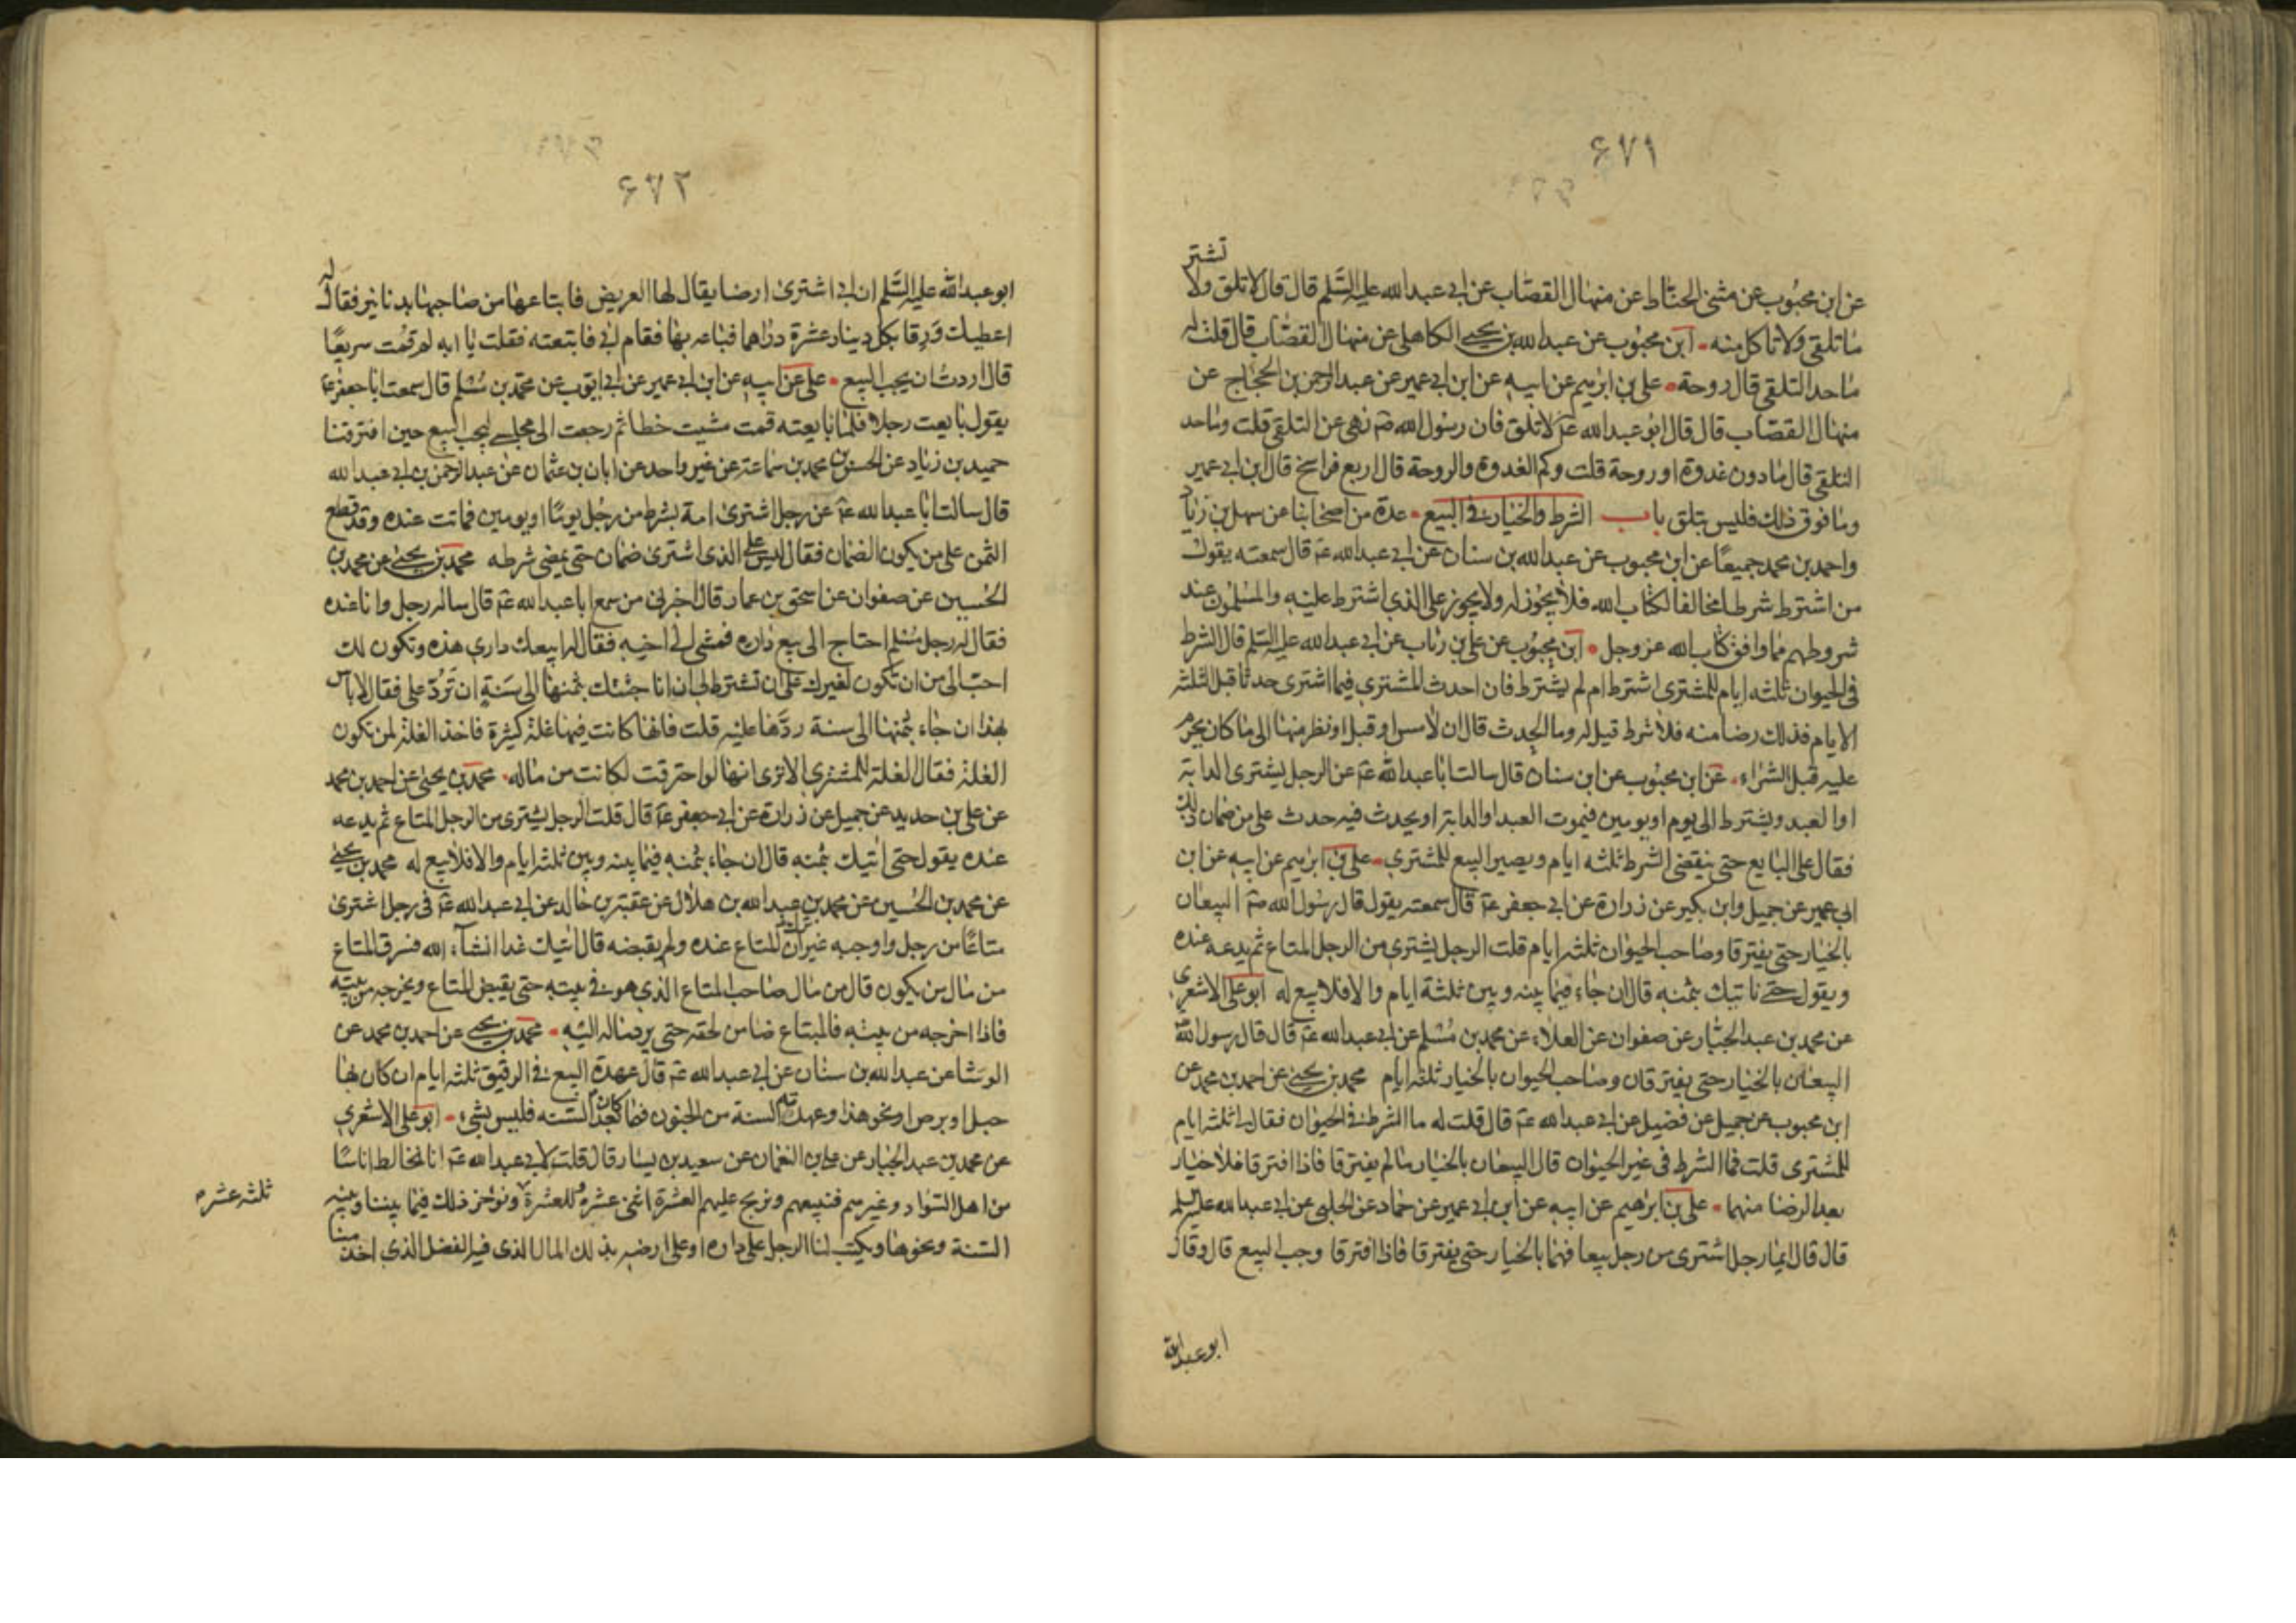 ۶۷۱
تشتر
عن ابن محبوب عن مثنى الحناط عن منهال القصاب عن ابى عبد الله عليه السلم قال قال لا تلق ولا
ما تلقى ولا تاكل منه ابن محبوب عن عبد الله بن يحيى الكاهلى عن منهال القصاب قال قلت له
ما حد التلقى قال روحة على بن ابرهيم عن ابيه عن ابن ابى عمير عن عبد الرحمن بن الحجاج عن
منهال القصاب قال قال ابو عبد الله عم لا تلق فان رسول الله صم نهى عن التلقى قلت وما حد
التلقى قال ما دون غدوة او روحة قلت وكم الغدوة والروحة قال اربع فراسخ قال ابن ابى عمير
وما فوق ذلك فليس بتلق باب الشرط والخيار فى البيع عدة من اصحابنا عن سهل بن زياد
واحمد بن محمد جميعًا عن ابن محبوب عن عبد الله بن سنان عن ابى عبد الله عم قال سمعته يقول
من اشترط شرطا مخالفا لكتاب الله فلا يجوز له ولا يجوز على الذى اشترط عليه والمسلمون عند
شروطهم مما وافق كتاب الله عز وجل ابن محبوب عن على بن رئاب عن ابى عبد الله عليه السلم قال الشرط
فى الحيوان ثلثه ايام للمشترى اشترط ام لم يشترط فان احدث المشترى فيما اشترى حدثا قبل الثلثه
الايام فذلك رضا منه فلا شرط قيل له وما الحدث قال ان لامس او قبل او نظر منها الى ما كان يحرم
عليه قبل الشراء عن ابن محبوب عن ابن سنان قال سالت ابا عبد الله عم عن الرجل يشترى الدابة
او العبد ويشترط الى يوم او يومين فيموت العبد او الدابة او يحدث فيه حدث على من ضمان ذلك
فقال على البايع حتى ينقضى الشرط ثلثه ايام ويصير البيع للمشترى على بن ابرهيم عن ابيه عن ابن
ابى عمير عن جميل وابن بكير عن زرارة عن ابى جعفر عم قال سمعته يقول قال رسول الله صم البيعان
بالخيار حتى يفترقا وصاحب الحيوان ثلثه ايام قلت الرجل يشترى من الرجل المتاع ثم يدعه عنده
ويقول حتى ناتيك بثمنه قال ان جاء فيما بينه وبين ثلثة ايام والا فلا بيع له ابو على الاشعرى
عن محمد بن عبد الجبار عن صفوان عن العلاء عن محمد بن مسلم عن ابى عبد الله عم قال قال رسول الله
البيعان بالخيار حتى يفترقان وصاحب الحيوان بالخيار ثلثه ايام محمد بن يحيى عن احمد بن محمد عن
ابن محبوب عن جميل عن فضيل عن ابى عبد الله عم قال قلت له ما الشرط فى الحيوان فقال لى ثلثه ايام
للمشترى قلت فما الشرط فى غير الحيوان قال البيعان بالخيار ما لم يفترقا فاذا افترقا فلا خيار
بعد الرضا منهما على بن ابرهيم عن ابيه عن ابن ابى عمير عن حماد عن الحلبى عن ابى عبد الله عليه السلم
قال قال ايما رجل اشترى من رجل بيعا فهما بالخيار حتى يفترقا فاذا افترقا وجب البيع قال وقال
ابو عبد الله
۶۷۲
ابو عبد الله عليه السلم ان ابى اشترى ارضا يقال لها العريض فابتاعها من صاحبها بدنانير فقال له
اعطيك ورقا بكل دينار عشرة دراهما فباعه بها فقام ابى فاتبعته فقلت يا ابه لم قمت سريعًا
قال اردت ان يجب البيع على عن ابيه عن ابن ابى عمير عن ابى ايوب عن محمد بن مسلم قال سمعت ابا جعفر عم
يقول بايعت رجلا فلما بايعته قمت مشيت خطا ثم رجعت الى مجلسى ليجب البيع حين افترقنا
حميد بن زياد عن الحسن بن محمد بن سماعة عن غير واحد عن ابان بن عثمان عن عبد الرحمن بن ابى عبد الله
قال سالت ابا عبد الله عم عن رجل اشترى امة بشرط من رجل يومًا او يومين فماتت عنده وقد قطع
الثمن على من يكون الضمان فقال ليس على الذى اشترى ضمان حتى يمضى شرطه محمد بن يحيى عن محمد بن
الحسين عن صفوان عن اسحق بن عمار قال اخبرنى من سمع ابا عبد الله عم قال ساله رجل وانا عنده
فقال له رجل مسلم احتاج الى بيع داره فمشى الى اخيه فقال له ابيعك دارى هذه وتكون لك
احب الى من ان تكون لغيرك على ان تشترط لى ان انا جئتك بثمنها الى سنة ان ترد على فقال لا باس
بهذا ان جاء بثمنها الى سنة ردها عليه قلت فانها كانت فيها غلة كثيرة فاخذ الغلة لمن تكون
الغلة فقال الغلة للمشترى الا ترى انها لو احترقت لكانت من ماله محمد بن يحيى عن احمد بن محمد
عن على بن حديد عن جميل عن زرارة عن ابى جعفر عم قال قلت الرجل يشترى من الرجل المتاع ثم يدعه
عنده يقول حتى اتيك بثمنه قال ان جاء بثمنه فيما بينه وبين ثلثه ايام والا فلا بيع له محمد بن يحيى
عن محمد بن الحسين عن محمد بن عبد الله بن هلال عن عقبة بن خالد عن ابى عبد الله عم فى رجل اشترى
متاعًا من رجل واوجبه غير ان المتاع عنده ولم يقبضه قال اتيك غدا انشاء الله فسرق المتاع
من مال من يكون قال من مال صاحب المتاع الذى هو فى بيته حتى يقبض المتاع ويخرجه من بيته
فاذا اخرجه من بيته فالمبتاع ضامن لحقه حتى يرد ماله اليه محمد بن يحيى عن احمد بن محمد عن
الوشا عن عبد الله بن سنان عن ابى عبد الله عم قال عهدة البيع فى الرقيق ثلثه ايام ان كان بها
حبل او برص او نحو هذا وعهدته السنة من الجنون فما كان بعد السنه فليس بشىء ابو على الاشعرى
عن محمد بن عبد الجبار عن على بن النعمان عن سعيد بن يسار قال قلت لابى عبد الله عم انا نخالط اناسًا
من اهل السواد وغيرهم فنبيعهم ونربح عليهم العشرة اثنى عشره وللعشرة ونوخر ذلك فيما بيننا وبينه
ثلثه عشره
السنة ونحوها ويكتب لنا الرجل على داره او على ارضه بذلك المال الذى فيه الفضل الذى اخذ منا